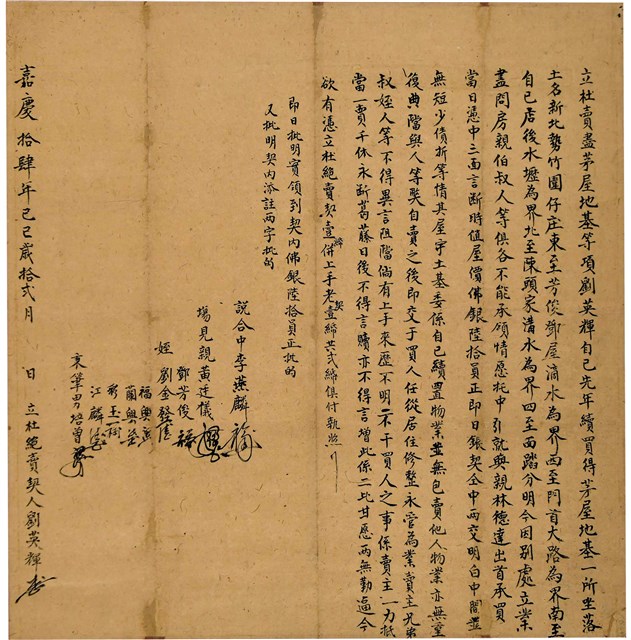 立杜賣盡茅屋地基等項劉英輝自己先年續買得茅屋地基一所坐落
土名新北勢竹圍仔庄東至芳俊鄰屋滴水為界西至門首大路為界南至
自己居後水壢為界北至陳頭家滴水為界四至面踏分明今因別處立業
盡問房親伯叔人等俱各不能承領情愿托中引就與親林德達出首承買
當日憑中三面言斷時值屋價佛銀陸拾員正即日銀契仝中兩交明白中間並
無短少債折等情其屋宇土基委係自己續置物業並無包賣他人物業亦無重
復典當與人等獘自賣之後即交于買人任從居住修整永管為業賣主兄弟
叔姪人等不得異言阻當倘有上手來歷不明不干買人之事係賣主一力抵
當一賣千休永斷葛藤日後不得言贖亦不得言增此係二比甘愿兩無勤逼今
欲有憑立杜絕賣契壹紙併上手老契壹紙共弍紙俱付執照
即日批明實領到契內佛銀陸拾員正批的
又批明契內添註兩字批的
說合中李燕麟
場見親黃廷儀
鄭芳俊
姪劉金發
福興
蘭興
秀玉
江麟
秉筆男培曾
嘉慶拾肆年己巳歲拾弍月 日立杜絕賣契人劉英輝